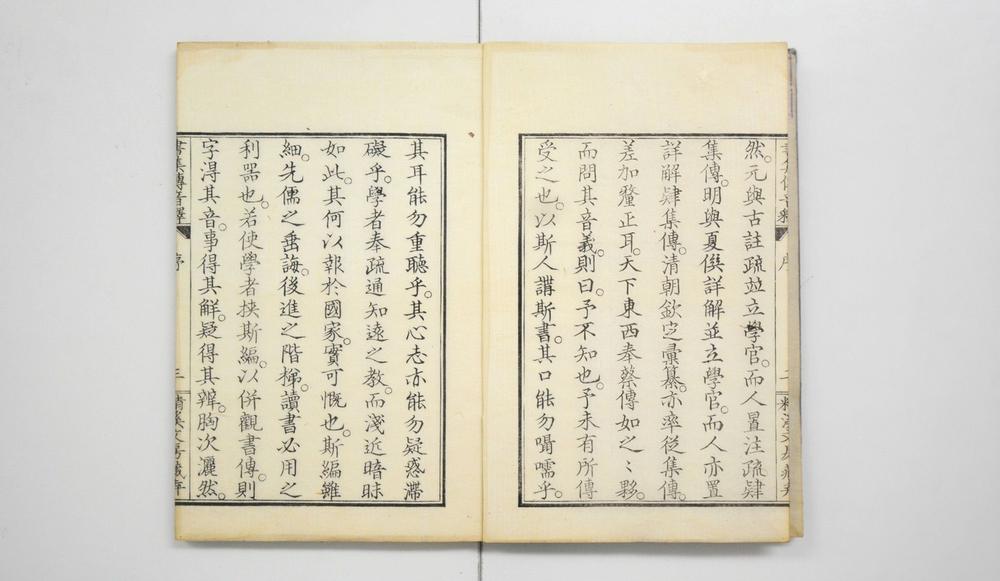 然。元與古註疏竝立學官。而人置注疏肄
集傳。明與夏僎詳解並立學官。而人亦置
詳解肄集傳。清朝欽定彙纂。亦率從集傳。
差加釐正耳。天下東西奉蔡傳如之〻夥。
而問其音義。則曰。予不知也。予未有所傳
受之也。以斯人講斯書。其口能勿囁嚅乎。
其耳能勿重聽乎。其心志亦能勿疑惑滯
礙乎。學者奉疏通知遠之教。而淺近暗昧
如此。其何以報於國家。寔可慨也。斯編雖
細。先儒之垂誨。後進之階梯。讀書必用之
利器也。若使學者挾斯編。以併觀書傳。則
字得其音。事得其解。疑得其辨。胸次灑然。
書集傳音釋
序
三